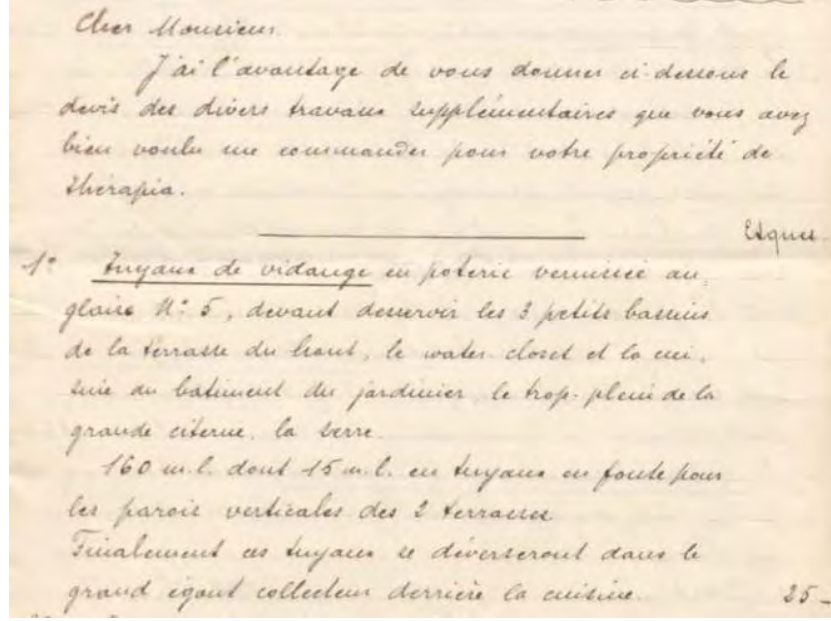 Cher Monsieur
J'ai l'avantage de vous donner ci-dessous le
devis des divers travaux supplémentaires que vous avez
bien voulu me commander pour votre propriété de
Thérapia.
Ltques
1° Tuyaux de vidange en poterie vernissée au
glaire N° 5, devant desservir les 3 petits bassins
de la terrasse du haut, le water-closet et la cui,
sine du batiment du jardinier, le trop-plein de la
grande citerne, la serre.
160 m.l. dont 15 m.l. en tuyaux en fonte pour
les parois verticales des 2 terrasses.
Finalement ces tuyaux se déverseront dans le
grand égout collecteur derrière la cuisine. 25-